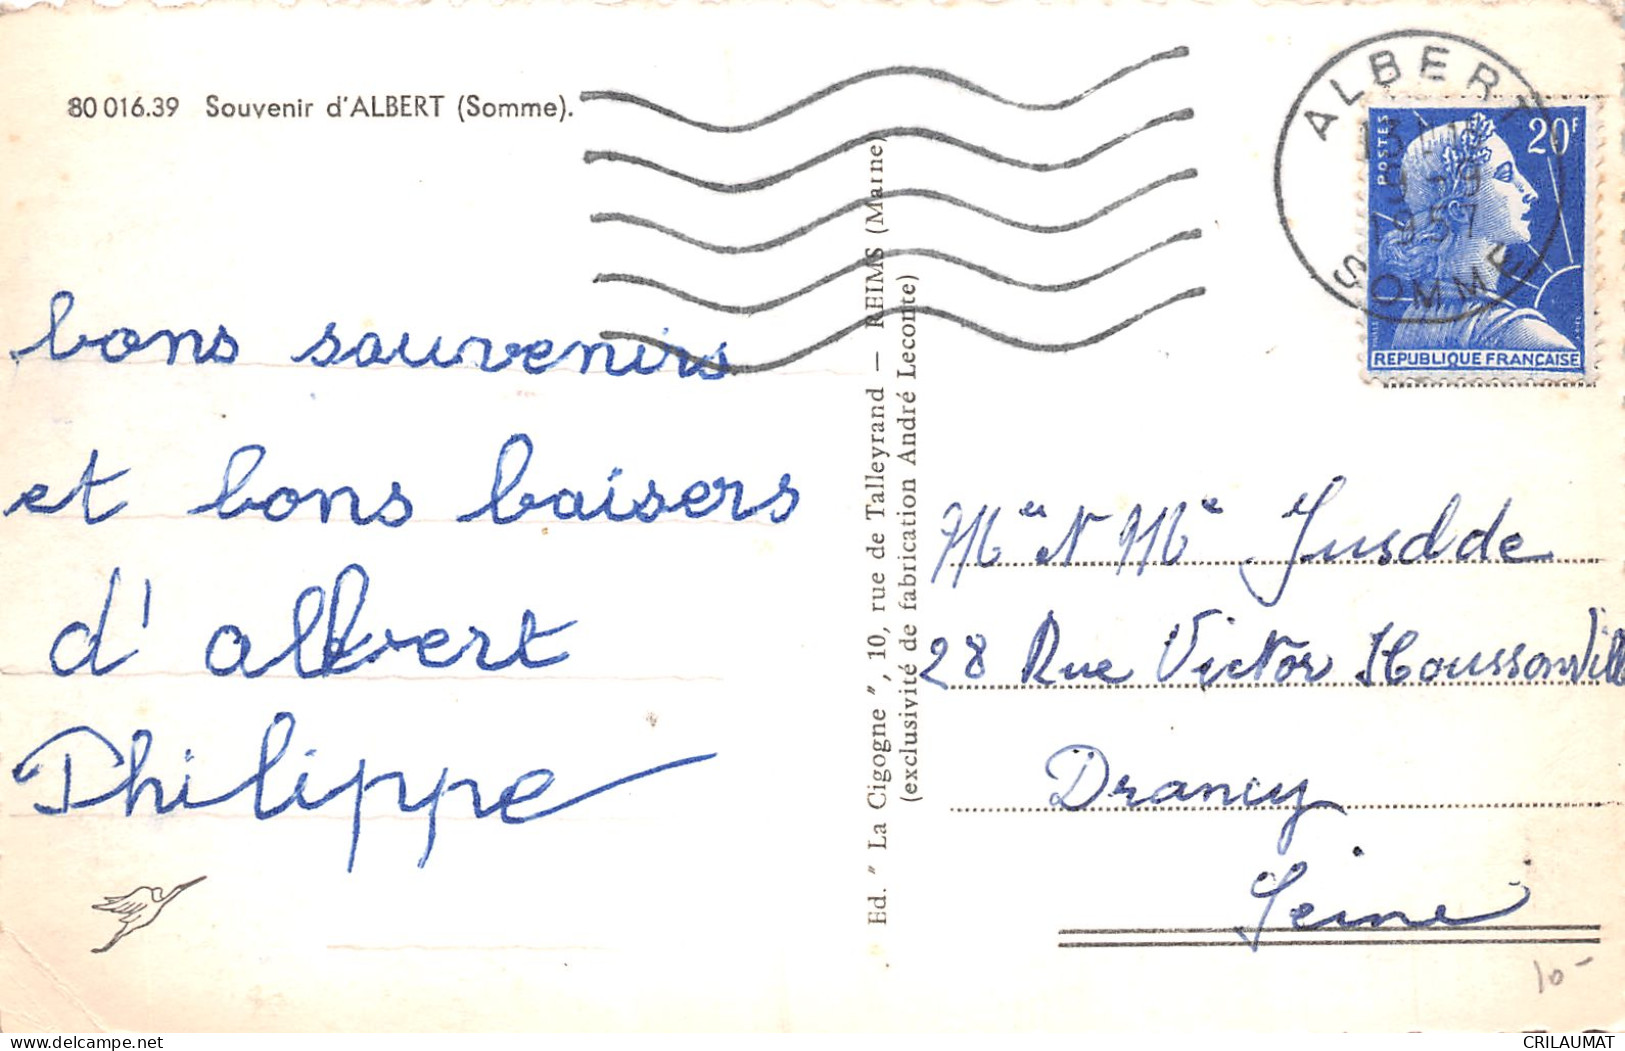 80 016.39 Souvenir d'ALBERT (Somme).
bons souvenirs
et bons baisers
d'albert
Philippe
Ed. " La Cigogne ", 10, rue de Talleyrand — REIMS (Marne)
(exclusivité de fabrication André Leconte)
ALBERT
9 - 9
1957
SOMME
POSTES
20F
REPUBLIQUE FRANÇAISE
Jusdde
28 Rue Victor Houssonville
Drancy
Seine
10-
CRILAUMAT